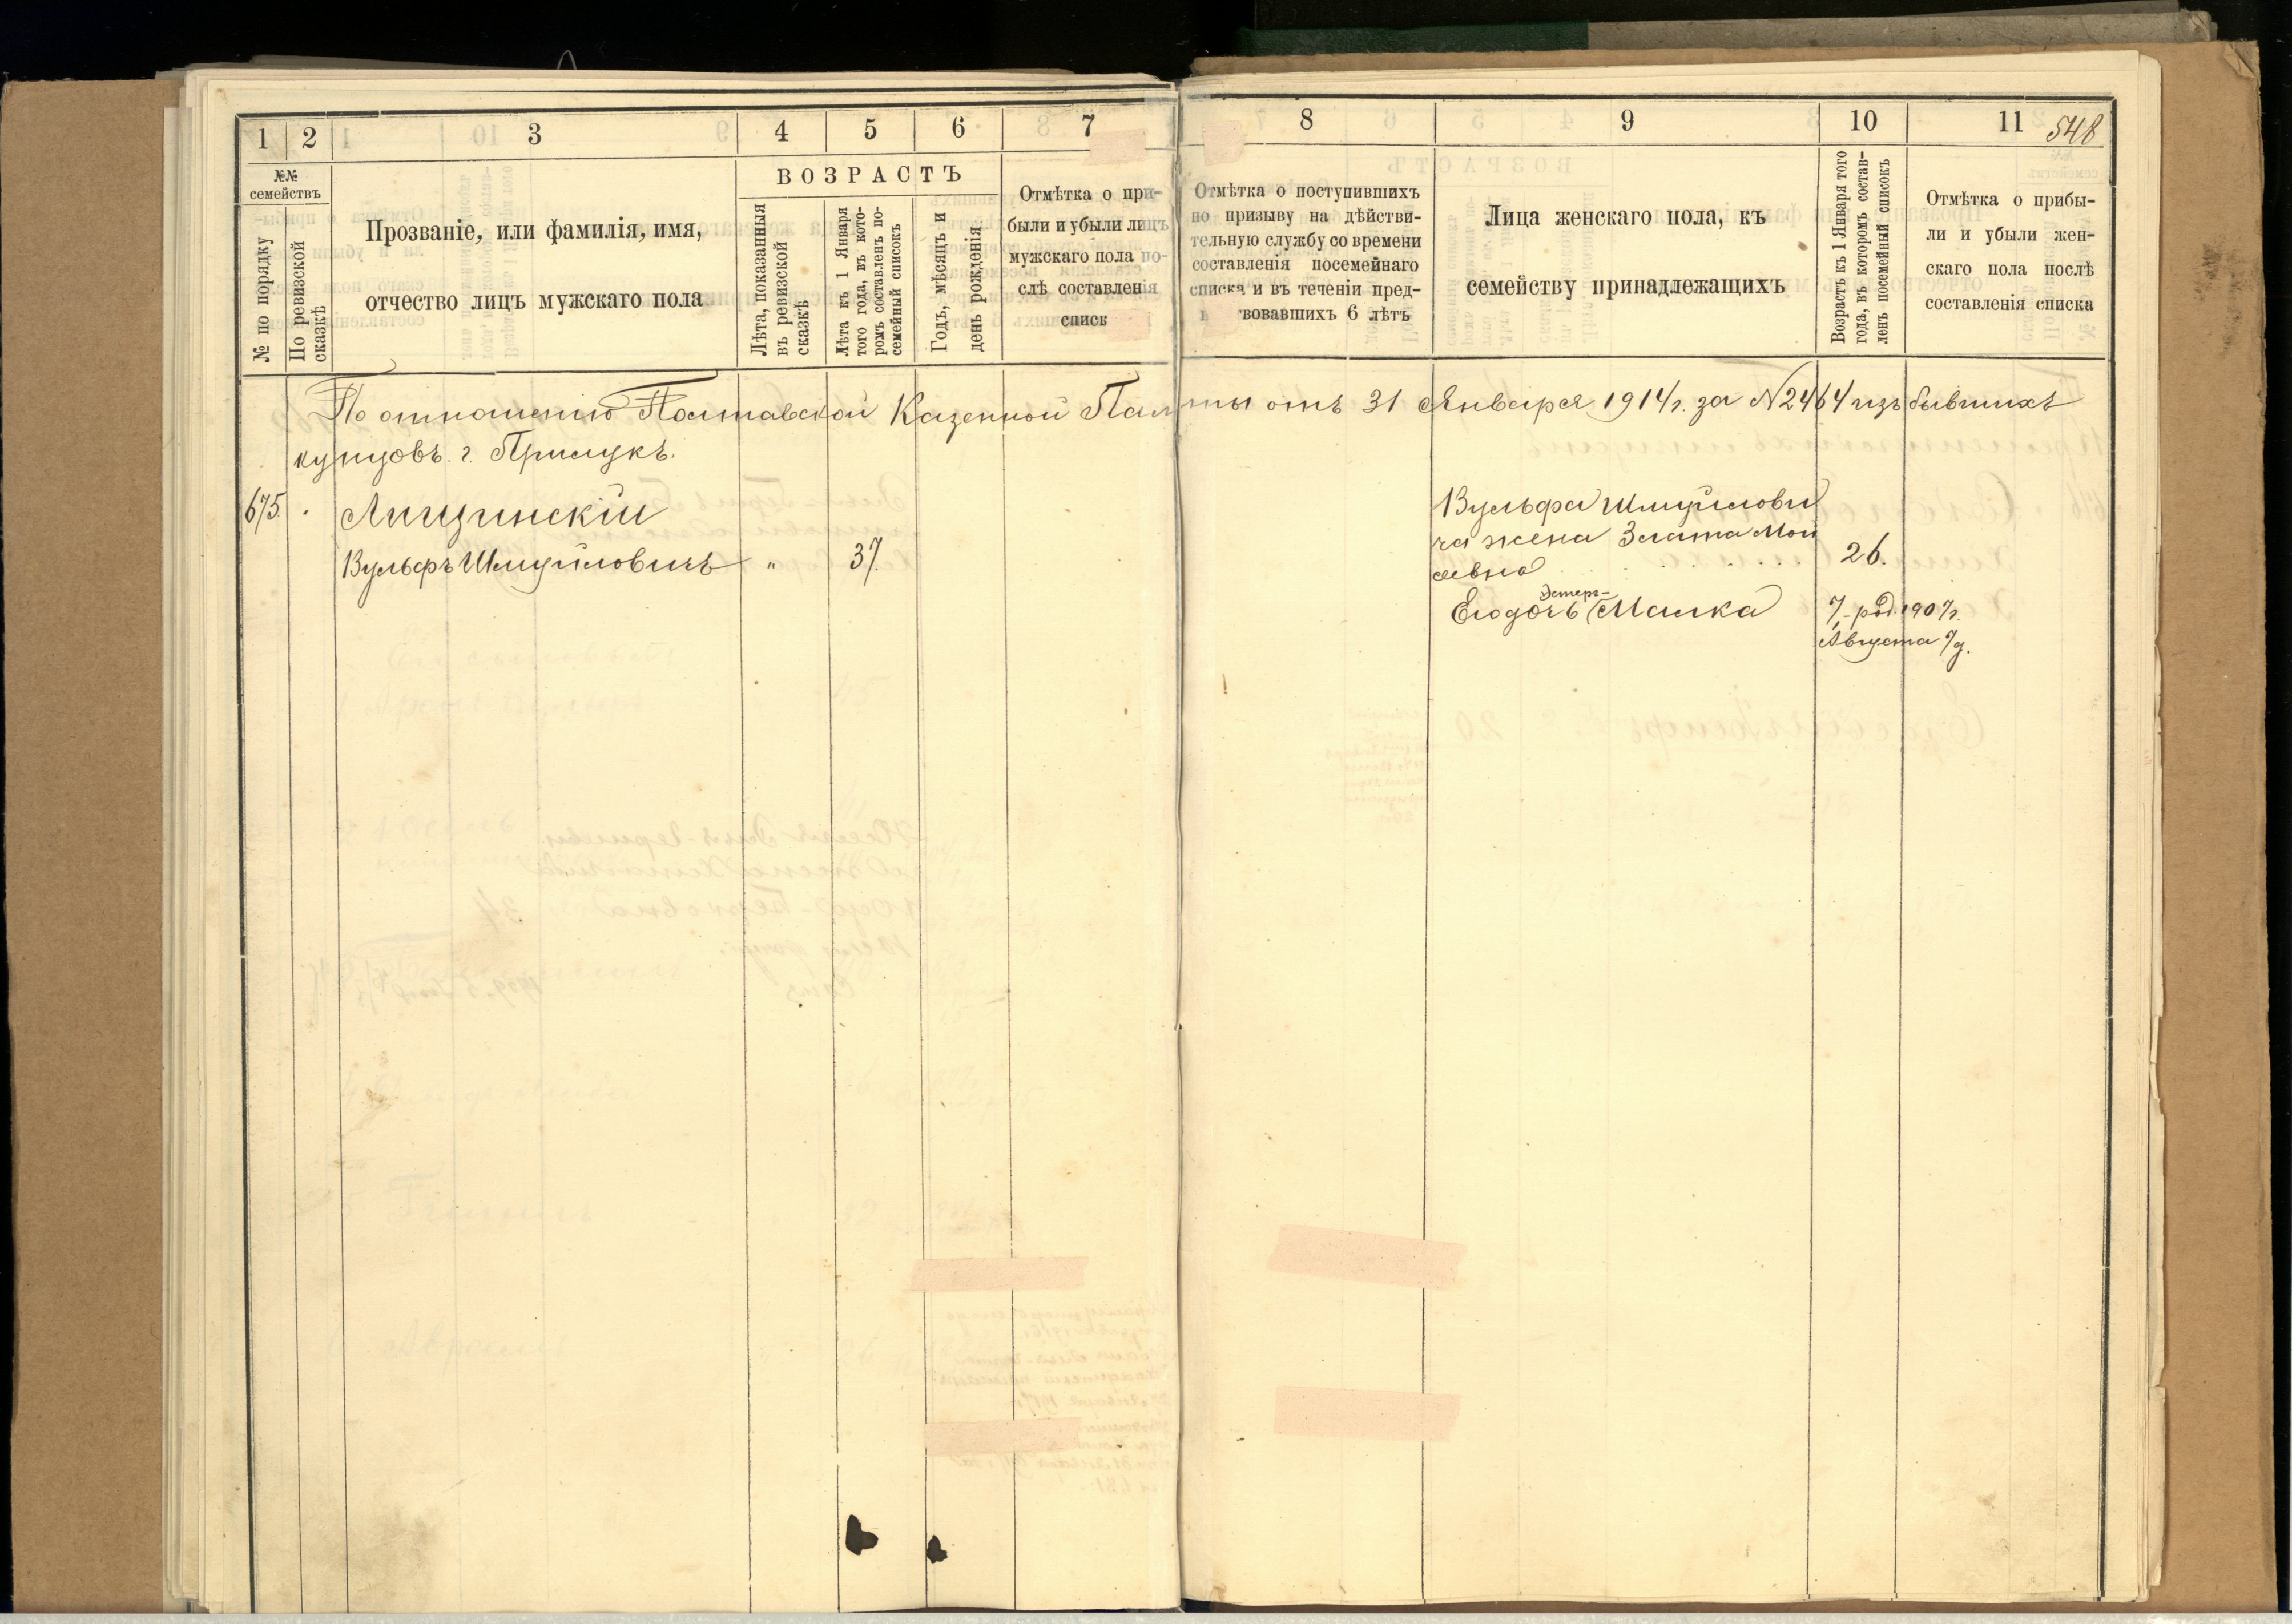 1 2 3 4 5 6 7 8 9 10 11 548
№№ семействъ
№ по порядку
По ревизской сказкѣ
Прозваніе, или фамилія, имя,
отчество лицъ мужскаго пола
ВОЗРАСТЪ
Лѣта, показанныя
въ ревизской
сказкѣ
Лѣта къ 1 Января
того года, въ кото-
ромъ составленъ по-
семейный списокъ
Годъ, мѣсяцъ и
день рожденія
Отмѣтка о при-
были и убыли лицъ
мужскаго пола по-
слѣ составленія
списк
Отмѣтка о поступившихъ
по призыву на дѣйстви-
тельную службу со времени
составленія посемейнаго
списка и въ теченіи пред-
вовавшихъ 6 лѣтъ
Лица женскаго пола, къ
семейству принадлежащихъ
Возрастъ къ 1 Января того
года, въ которомъ состав-
ленъ посемейный списокъ
Отмѣтка о прибы-
ли и убыли жен-
скаго пола послѣ
составленія списка
По отношенію Полтавской Казенной Палаты отъ 31 Января 1914 г. за №2464 изъ бывшихъ
купцовъ г. Прилукъ.
675
Вульфъ Шмуйловичъ „ 37.
Вульфа Шмуйлови
ча жена Злата Мой
сеевна 26.
Эстеръ-
Его дочь Малка 7,- род. 1907 г.
Августа 7 д.